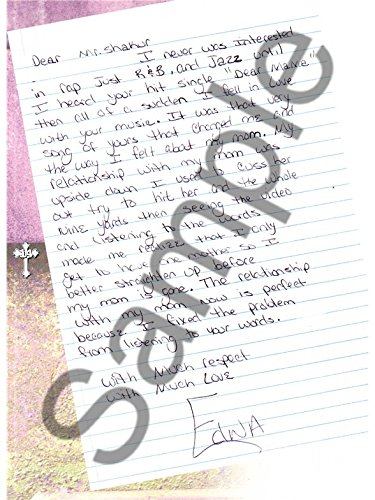 Dear Mr. Shakur
I never was interested
in rap just R&B. and Jazz until
I heard your hit single "Dear Mama"
then all of a sudden I fell in love
with your music. It was that very
song of yours that changed me and
the way I felt about my mom. My
relationship with my mom was
upside down I used to cuss her
out try to hit her and the whole
nine yards then seeing the video
and listening to the words
made me realize that I only
get to have one mother so I
better straighten up before
my mom is gone. The relationship
with my mom now is perfect
because I fixed the problem
from listening to your words.
With Much respect
with Much Love
Edna
Sample